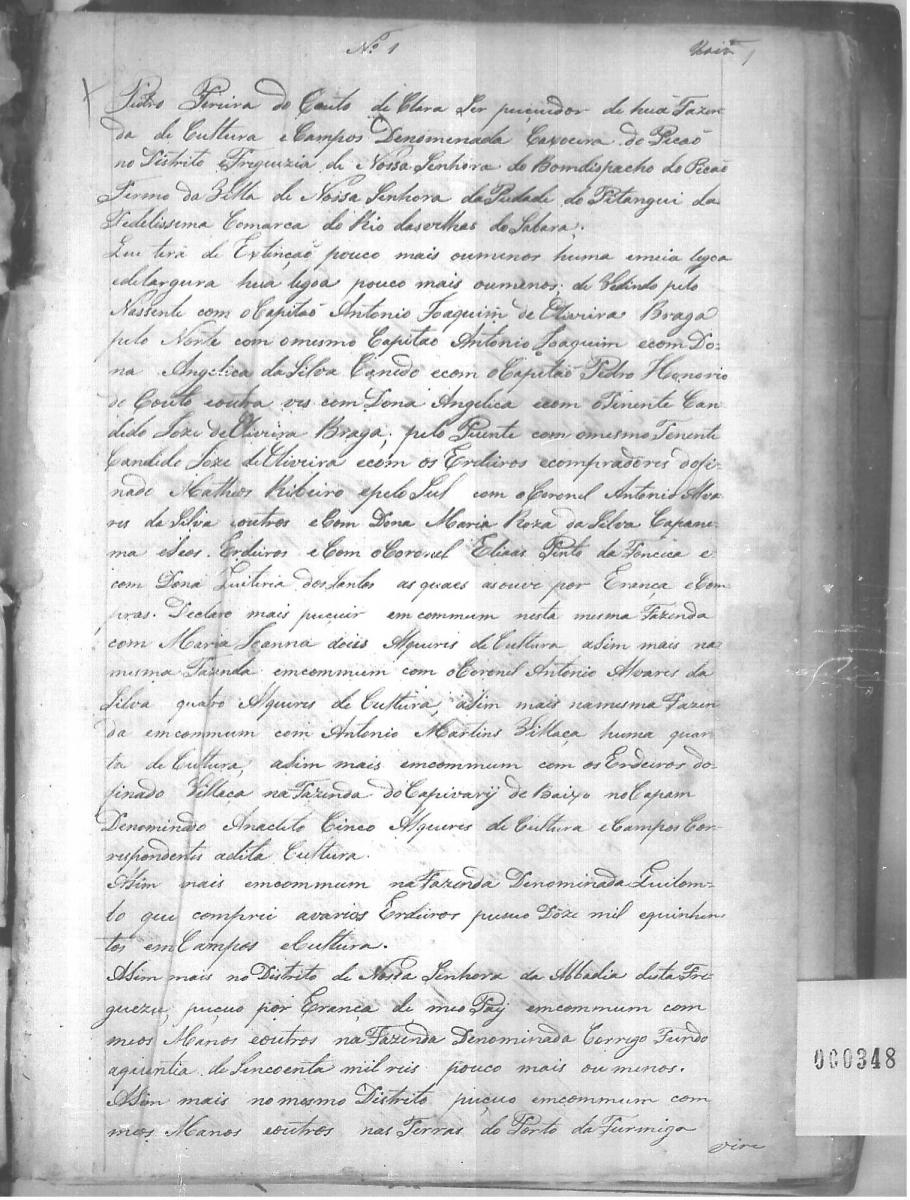 Nº 1
1
Pedro Pereira do Couto de Clara Ser puçuidor de huã Fazen-
da de Cultura e Campos Denomenada Caxoeira do Picaõ
no Distrito e Freguizia de Nossa Senhora do Bomdispacho do Picaõ
Termo da Villa de Nossa Senhora da Piedade do Pitangui da
Fedelissema Comarca do Rio dasvelhas do Sabara;
Que terá de Extinçaõ pouco mais oumenos huma emeia legoa
edelargura huã legoa pouco mais oumenos; devedindo pelo
Nassente com oCapitaõ Antonio Joaquim de Oliveira Braga
pelo Norte com omesmo Capitaõ Antonio Joaquim ecom Do-
na Angelica da Silva Canedo ecom oCapitaõ Pedro Honorio
do Couto eoutra ves com Dona Angelica ecom oTenente Can-
dedo Joze deOliveira Braga, pelo Puente com omesmo Tenente
Candido Joze deOliveira ecom os Erdeiros ecompradores dofi-
nado Matheos Ribeiro epelo Sul com oCoronel Antonio Alva-
res da Silva eoutros eCom Dona Maria Roza da Silva Capane-
ma eSeos Erdeiros eCom oCoronel Elias Pinto da Fonceca e
com Dona Quiteria dosSantos as quaes asouve por Erança eCom-
pras. Declaro mais puçuir emcommum nesta mesma Fazenda
com Maria Joanna dois Alqueres deCultura aSim mais na
mesma Fazenda emcommum com oCoronel Antonio Alvares da
Silva quatro Alqueres de Cultura, aSim mais namesma Fazen-
da emcommum com Antonio Martins Villaça huma quar-
ta de Cultura, aSim mais emcommum com os Erdeiros do-
finado Villaca naFazenda do Capivarÿ de Baixo no Capam
Denominado Anacleto Cinco Alqueres de Cultura eCampos Cor-
respondentes adita Cultura.
ASim mais emcommum naFazenda Denominada Quilom-
bo que comprei avarios Erdeiros puçuo Dôze mil equinhen-
tos emCampos eCultura.
ASim mais no Distrito de Nossa Senhora da Abbadia desta Fre-
guezia, puçuo por Erança de meo Paÿ emcommum com
meos Manos eoutros na Fazenda Denominada Corrego Fundo
aquentia de Sincoenta mil reis pouco mais ou menos.
ASim mais nomesmo Distrito puçuo emcommum com
meos Manos eoutros nas Terras do Porto da Furmiga
vire
000348